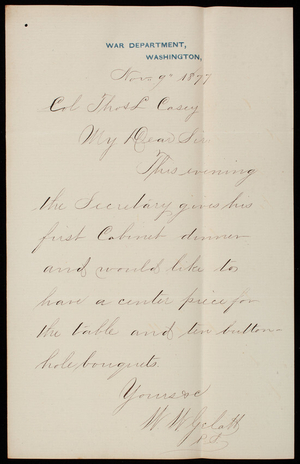 WAR DEPARTMENT,
WASHINGTON,
Nov 9th 1877
Col Thos L Casey
My Dear Sir
This evening
the Secretary gives his
first Cabinet dinner
and would like to
have a center piece for
the table and ten button-
hole bouquets.
Yours &c
W W